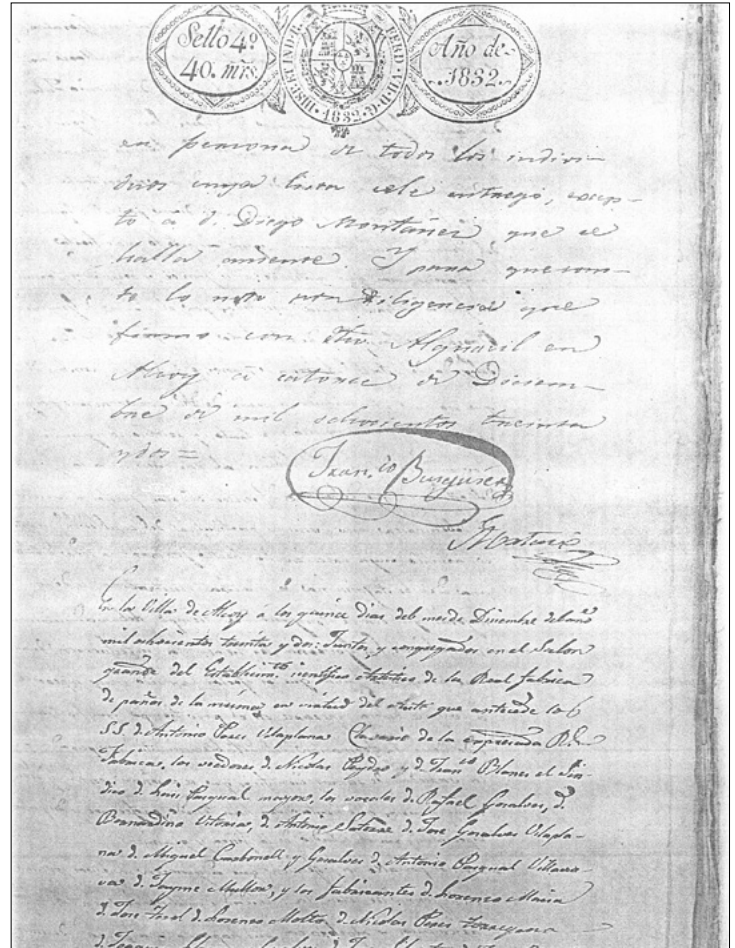 Sello 4º
40. mrs.
HISP. ET IND. R.
FERD. VII. D. G.
1832
Año de
1832.
en persona de todos los indivi-
duos cuya lista se le entregó, excep-
to á D. Diego Montañez que se
halla ausente. Y para que cons-
te lo noto por diligencia que
firmo con dho Alguacil en
Alcoy á catorce de Diciem-
bre de mil ochocientos treinta
y dos =
Fran.co
En la Villa de Alcoy á los quince dias del mes de Diciembre del año
mil ochocientos treinta y dos: Juntos y congregados en el Salon
grande del Establecim.to cientifico artistico de la Real fabrica
de paños de la misma en virtud del Auto que antecede los
S.S. D. Antonio Peres Vilaplana Clavario de la expresada R.l
Fabrica, los veedores D. Nicolas Peydro y D. Fran.co Blanes el Sin-
dico D. Luis Pasqual mayor, los vocales D. Rafael Gosalves, D.
Bernardino Vitoria, D. Antonio Satorre D. Jose Gosalves Vilapla-
na D. Miguel Carbonell y Gosalves D. Antonio Pasqual
D. Jayme Mullor, y los fabricantes D. Lorenzo Maria
D. Jose D. Lorenzo Molto, D. Nicolas Peres